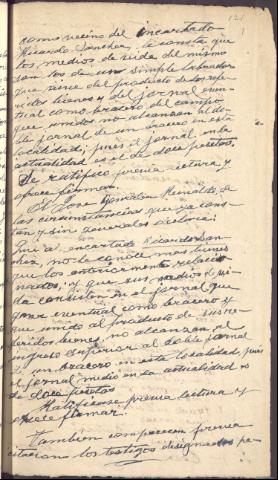 121
como vecino del encartado
Ricardo Sanchez, le consta que
los medios de vida del mismo
son los de un simple labrador
que vive del producto de los refe-
ridos bienes y del jornal even-
tual como bracero del campo
que unidos no alcanzan al do-
ble jornal de un bracero en esta
localidad, pues el jornal en la
actualidad es el de doce pesetas.
Se ratifica previa lectura, y
ofrece firmar.
Jose Gonzalez de
las circunstancias que ya cons-
tan y sin generales declara:
Que al encartado Ricardo San-
chez, no le conoce mas bienes
que los anteriormente relacio-
nados; y que sus medios de vi-
da consisten en el jornal que
gane eventual como bracero y
que unido al producto de sus re-
feridos bienes, no alcanzan al
ingreso superior al doble jornal
de un bracero en esta localidad, pues
el jornal medio en la actualidad es
de doce pesetas
Ratificase previa lectura y
ofrece firmar.
Tambien comparecen previa
citacion los testigos designados pa-